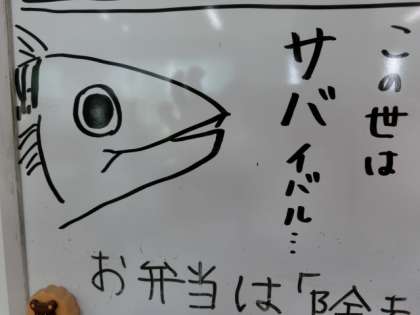 この世は
サバイバル…
お弁当は「